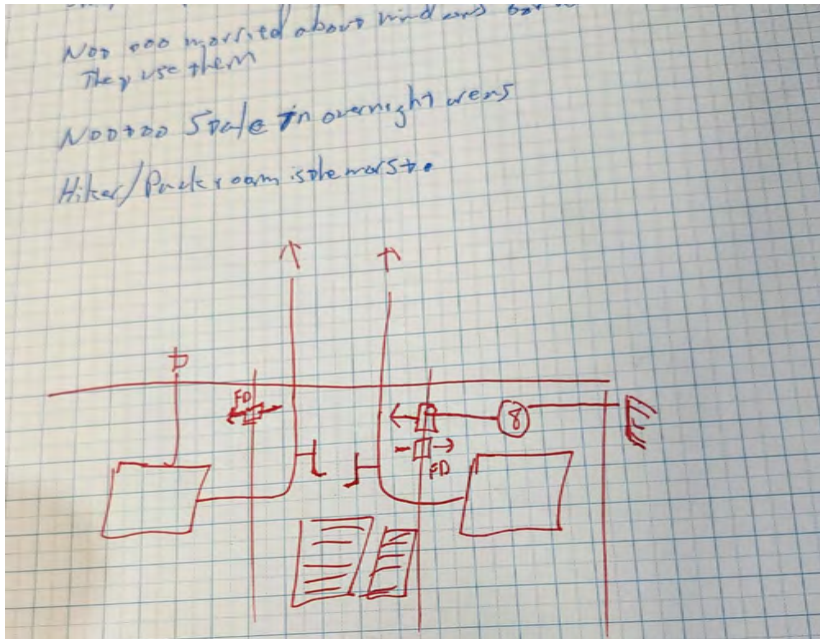 Not too worried about wind and
They use them
Not too Stale in overnight areas
Hiker/Pack room is the worst.
FD
FD
8